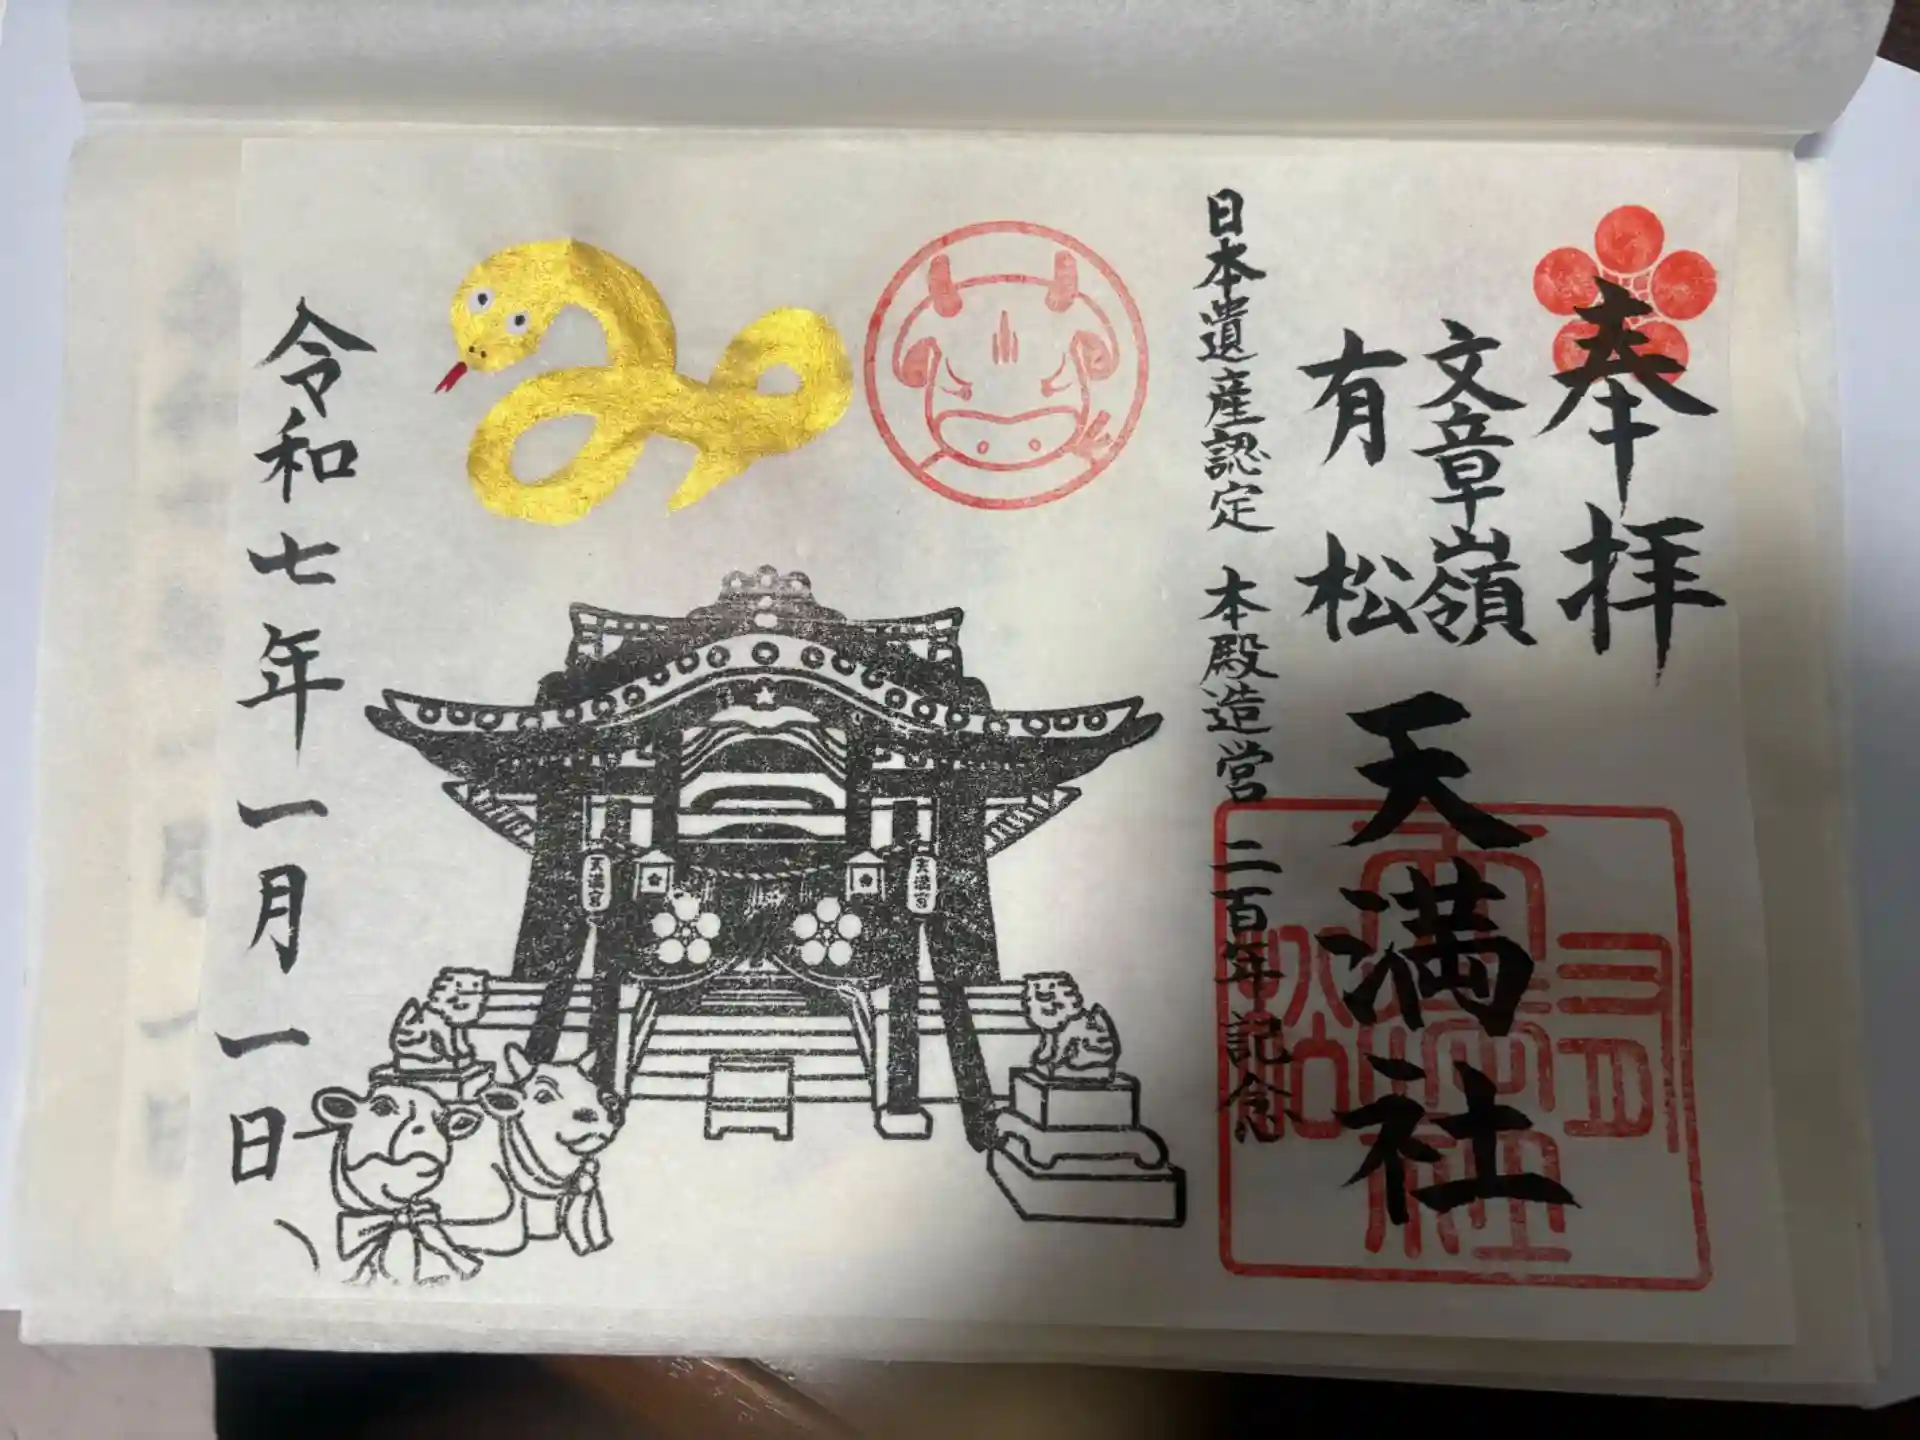 奉拝
文章嶺
有松
天満社
日本遺産認定 本殿造営 二百年記念
天満宮
天満宮
令和七年一月一日